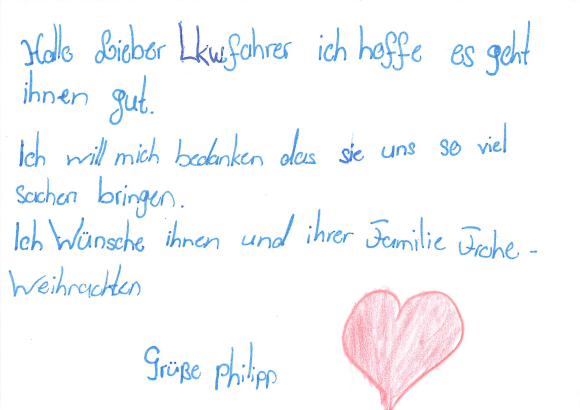 Hallo Lieber Lkwfahrer ich hoffe es geht
ihnen gut.
Ich will mich bedanken das sie uns so viel
sachen bringen.
Ich Wünsche ihnen und ihrer Familie Frohe -
Weihnachten
Grüße Philipp